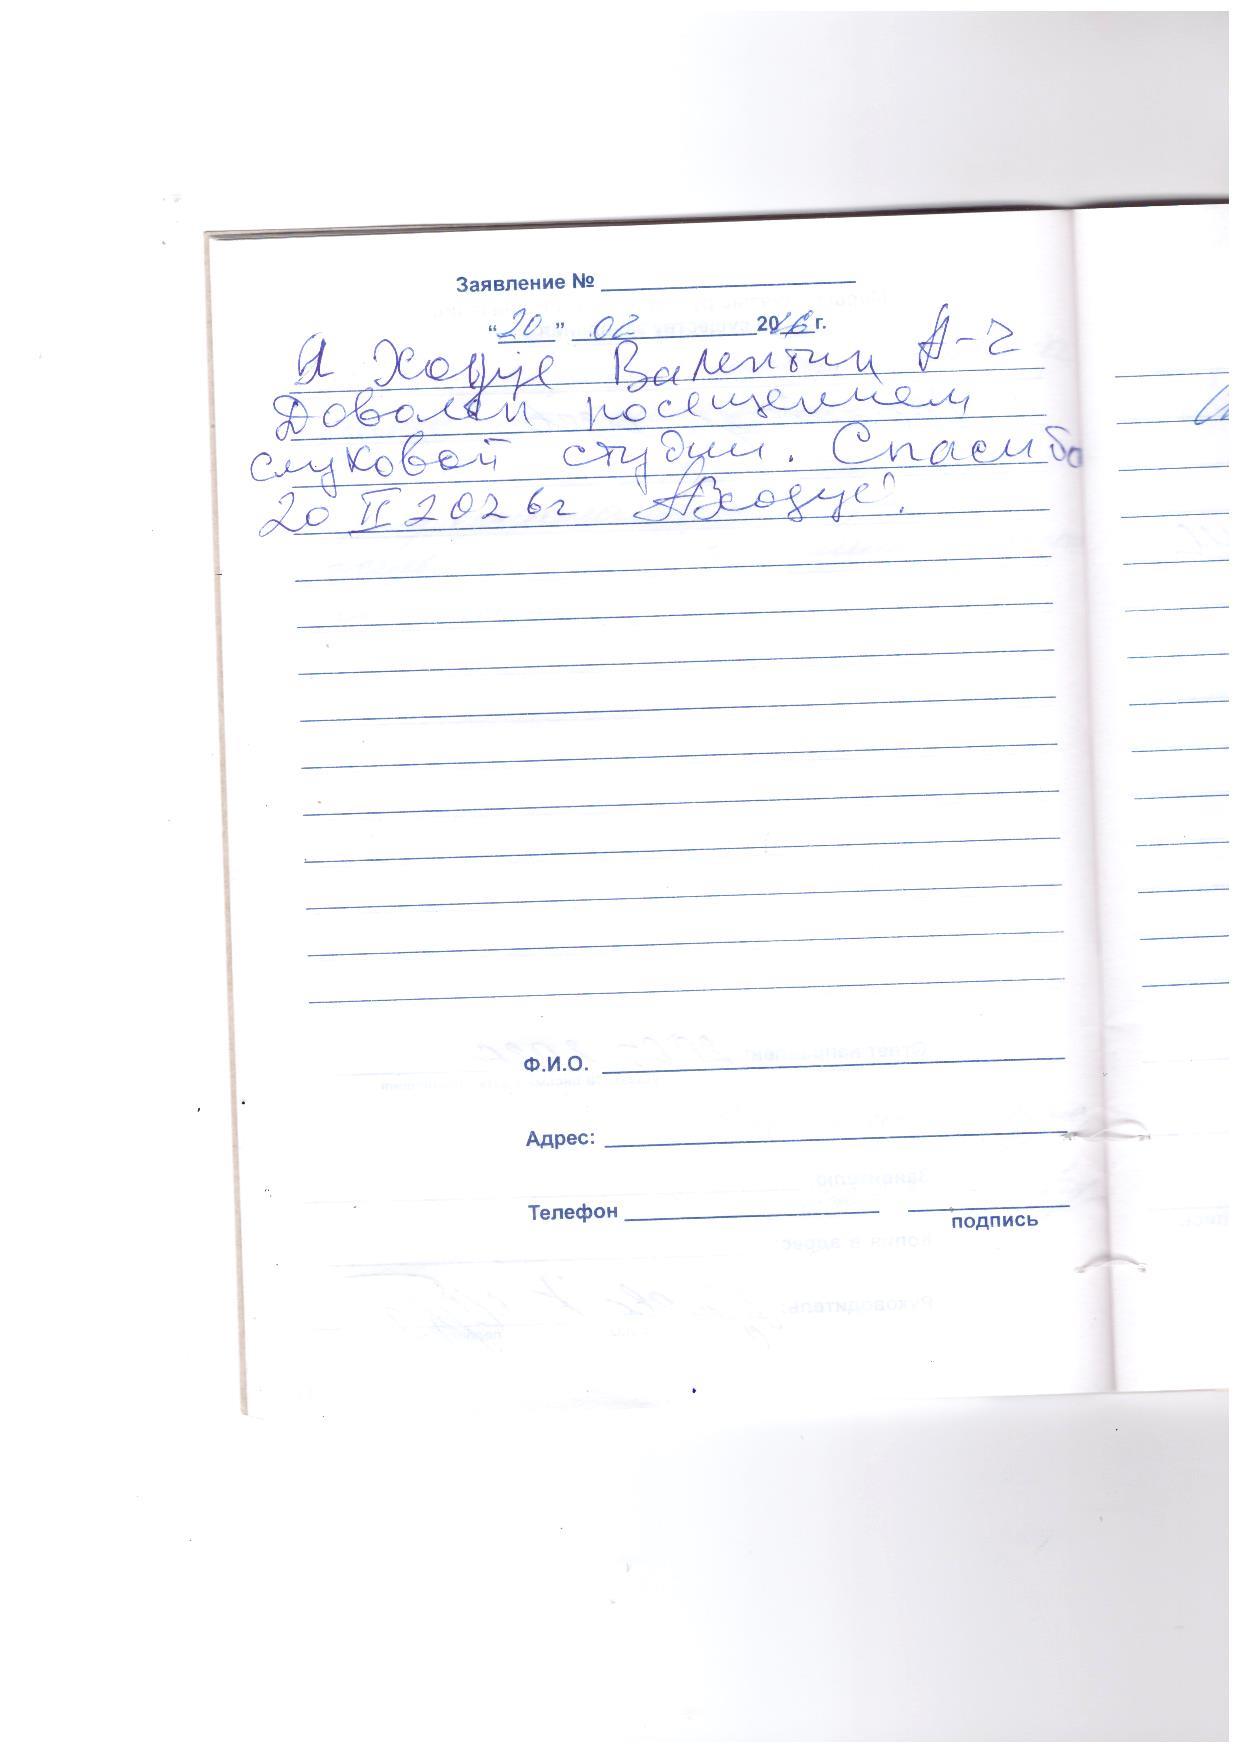 Заявление №
“20” 02 2026 г.
Я Ходус Валентин А-ч
Доволен посещением
слуховой студии. Спасибо
20 II 2026г
Ф.И.О.
Адрес:
Телефон
подпись